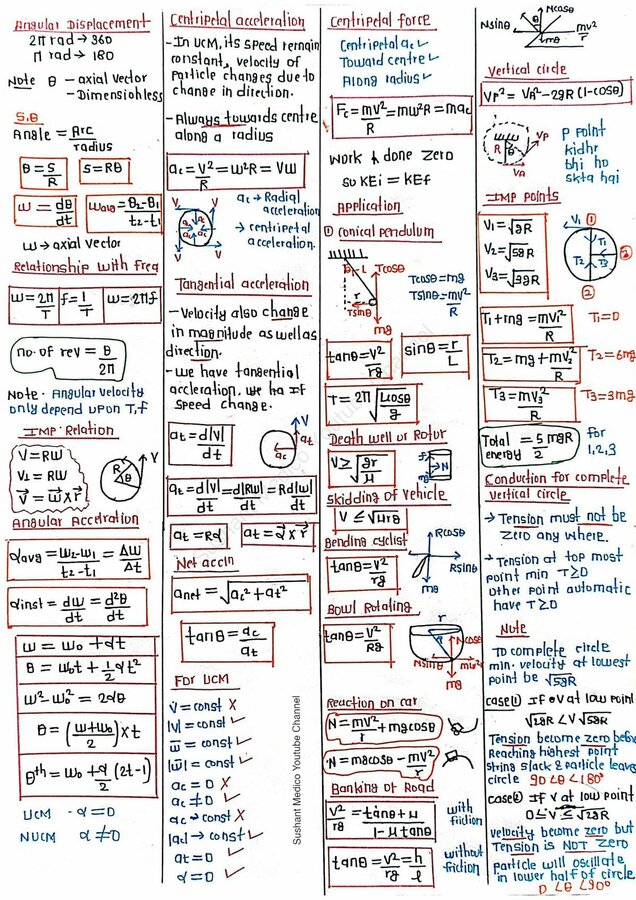 Angular Displacement
2π rad → 360
π rad → 180
Note θ - axial vector
- Dimensionless
S.θ
Angle = Arc/radius
θ = S/R
S = Rθ
ω = dθ/dt
ωavg = θ2-θ1/t2-t1
ω → axial vector
Relationship with freq
ω = 2π/T
f = 1/T
ω = 2πf
no. of rev = θ/2π
Note. Angular velocity
only depend upon T, f
IMP. Relation
V = Rω
V⊥ = Rω
V⃗ = ω⃗ x r⃗
R
θ
V
Angular Acceleration
αavg = ω2-ω1/t2-t1 = Δω/Δt
αinst = dω/dt = d²θ/dt
ω = ω0 + αt
θ = ω0t + 1/2 αt²
ω² - ω0² = 2αθ
θ = (ω+ω0/2) x t
θth = ω0 + α/2 (2t-1)
UCM - α = 0
NUCM α ≠ 0
Centripetal acceleration
- In UCM, its speed remain
constant, velocity of
Particle changes due to
change in direction.
- Always towards centre
along a radius
ac = V²/R = ω²R = Vω
V
V
V
V
ac
ac
ac
ac
ac → Radial
acceleration
→ centripetal
acceleration.
Tangential acceleration
- Velocity also change
in magnitude as well as
direction.
- we have tangential
acceleration. we ha If
speed change.
at = d|V|/dt
V
at
ac
at = d|V|/dt = d|Rω|/dt = Rd|ω|/dt
at = Rα
at = α⃗ x r⃗
Net accln
anet = √ac² + at²
tanθ = ac/at
For UCM
V̄ = const X
|V| = const ✓
ω̄ = const ✓
|ω̄| = const ✓
ac = 0 X
ac ≠ 0 ✓
ac → const X
|ac| → const ✓
at = 0 ✓
α = 0 ✓
Sushant Medico Youtube Channel
Centripetal force
Centripetal ac ✓
Toward centre ✓
Along radius ✓
Fc = mV²/R = mω²R = mac
Work done zero
so KEi = KEf
Application
① conical pendulum
Tcosθ
r
Tsinθ
mg
Tcosθ = mg
Tsinθ = mv²/R
tanθ = V²/rg
sinθ = r/L
T = 2π √Lcosθ/g
Death well or Rotor
V ≥ √gr/μ
f
N
mg
Skidding of vehicle
V ≤ √μrg
Bending cyclist
tanθ = V²/rg
Rcosθ
Rsinθ
mg
Bowl Rotating
tanθ = V²/Rg
r
Ncosθ
Nsinθ
mv²/r
mg
Reaction on car
N = mv²/r + mgcosθ
N = mgcosθ - mv²/r
Banking of Road
V²/rg = tanθ+μ/1-μtanθ
with
friction
tanθ = V²/rg = h/l
without
friction
Ncosθ
Nsinθ
θ
mv²/r
mg
Vertical circle
VP² = VA² - 2gR (1-cosθ)
R
θ
VP
VA
P point
kidhr
bhi ho
skta hai
IMP points
V1 = √gR
V2 = √5gR
V3 = √3gR
V1
①
T1
T2
T3
③
②
T1 + mg = mV1²/R
T1 = 0
T2 = mg + mV2²/R
T2 = 6mg
T3 = mV3²/R
T3 = 3mg
Total energy = 5/2 mgR
for
1,2,3
Conduction for complete
vertical circle
→ Tension must not be
zero any where.
→ Tension at top most
point min T≥0
Other point automatic
have T≥0
Note
To complete circle
min. velocity at lowest
point be √5gR
case(i) If V at low point
√2gR < V √5gR
Tension become zero before
Reaching highest point
string slack & particle leaves
circle 90<θ<180°
case(ii) If V at low point
0 ≤ V ≤ √2gR
Velocity become zero but
Tension is NOT Zero
Particle will oscillate
in lower half of circle.
0 < θ < 90°